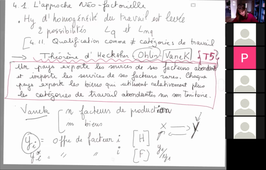 4.1 L'approche Néo-factorielle
. Hy. d'homogénéité du travail est levée
2 possibilités Lq et Lnq
[4.1] Qualification comme catégories de travail
→ Théorème d'Heckscher Ohlin Vanek T5
Un pays exporte les services de ses facteurs abondants
et importe les services de ses facteurs rares. Chaque
pays exporte les biens qui utilisent relativement plus
les catégories de travail abondantes sur son
Vanek n facteurs de production
m biens
offre de facteur i [H]
" " " [F]
P